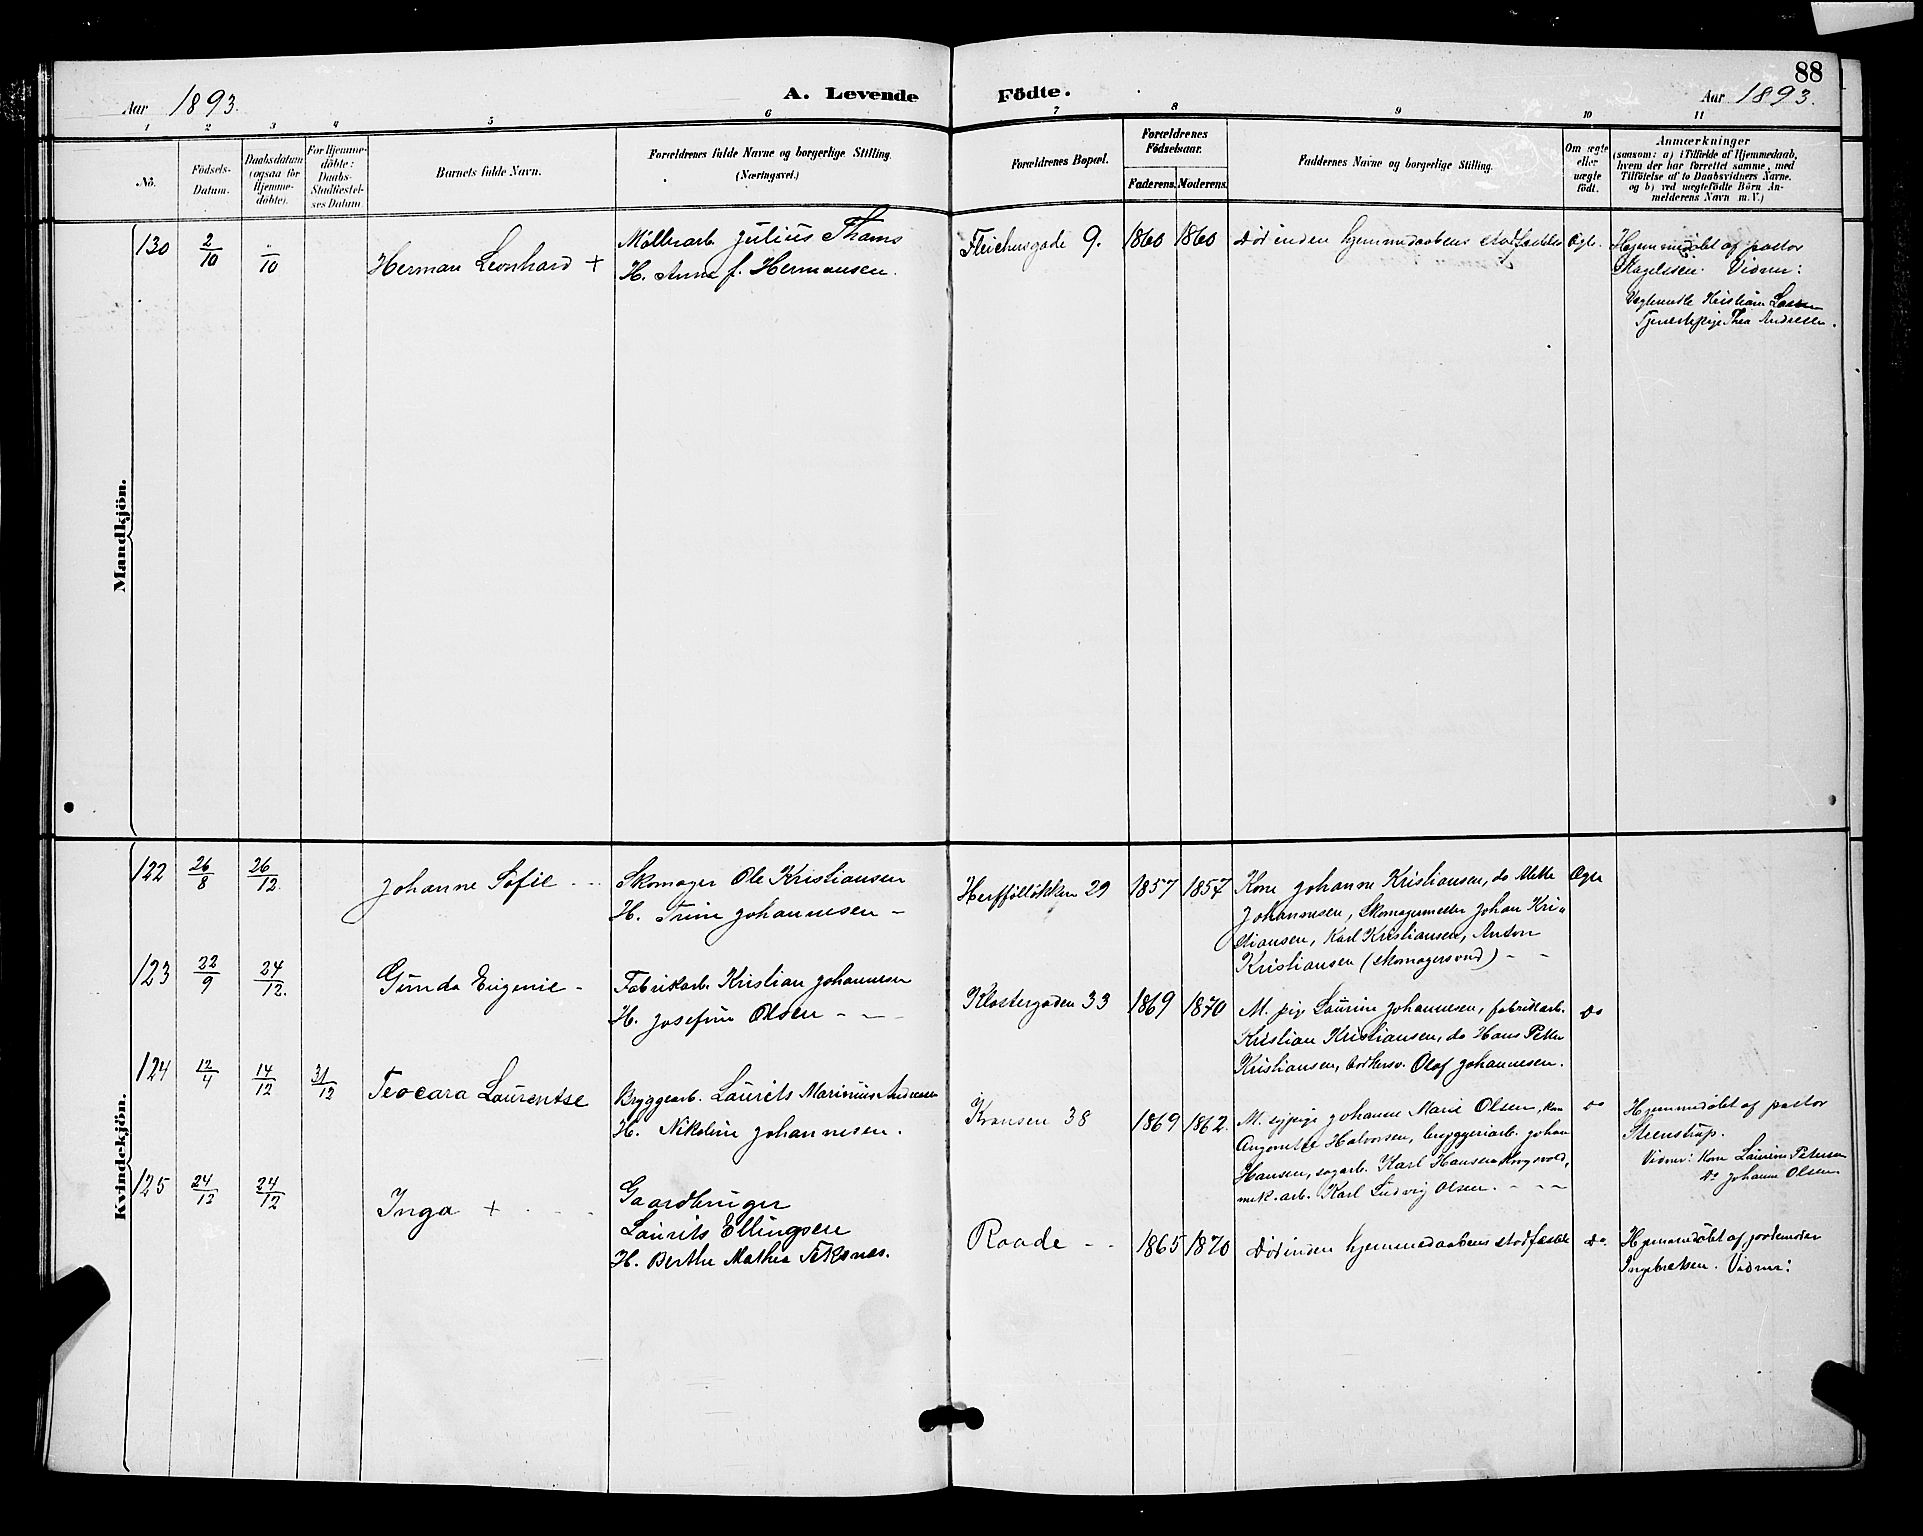 88
Aar 1893.
A. Levende
Födte.
Aar 1893.
1 2 3 4 5 6 7 8 9 10 11
No.
Födsels-
Datum.
Daabsdatum
(ogsaa for
Hjemme-
döbte).
For Hjemme-
döbte:
Daabs-
Stadfæstel-
ses Datum
Barnets fulde Navn.
Forældrenes fulde Navne og borgerlige Stilling.
(Næringsvei.)
Forældrenes Bopæl.
Forældrenes
Födselsaar.
Faderens. Moderens.
Faddernes Navne og borgerlige Stilling.
Om ægte
eller
uægte
födt.
Anmærkninger
(saasom: a) i Tilfælde af Hjemmedaab,
hvem der har forrettet samme, med
Tilföielse af to Daabsvidners Navne.
og b) ved uægtefödte Börn An-
melderens Navn m. V.)
Mandkjön.
130
2/10
"/10
Herman Leonhard +
Møllerarb. Julius Thams
H. Anna f. Hermansen.
9.
1860 1860
Død inden hjemmedaabens stadfæstelse
Ægte.
Hjemmedøbt af pastor
Vidner:
Kristian
Tjenestepige Thea Andresen.
Kvindekjön.
122
26/8
26/12.
Johanne Sofie - -
Skomager Ole Kristiansen
H. Trine Johannesen -
29
1857 1857
Kone Johanne Kristiansen, do Mette
Johannesen, Skomagermester Johan Kri-
stiansen, Karl Kristiansen, Anton
Kristiansen (skomagersvend) - -
Ægte
123
22/9
24/12.
Gunda Eugenie -
Fabrikarb. Kristian Johannesen
H. Josefine Olsen - - -
Klostergaden 33
1869 1870
M. pige Laurine Johannesen, fabrikarb.
Kristian Kristiansen, do Hans Petter
Kristiansen, Olaf Johannesen.
do
124
12/4
14/12
31/12
Teocara Laurentse
Bryggearb. Laurits Marinius Andreasen
H. Nikoline Johannesen.
Kransen 38
1869 1862.
M. sypige Johanne Marie Olsen, kone
Halvorsen, bryggeriarb. Johan
Hansen, sagarb. Karl Hansen
mek. arb. Karl Ludvig Olsen. - - -
do
Hjemmedøbt af pastor
Steenstrup.
Vidner: Kone Laurine Petersen
do Johanne Olsen
125
24/12
24/12
Inga + - - -
Gaardbruger
Laurits Ellingsen
H. Berthe Mathea Teksnes.
Raade - -
1865 1870
Død inden hjemmedaabens stadfæstelse
do.
Hjemmedøbt af jordemoder
Ingebretsen. Vidner: